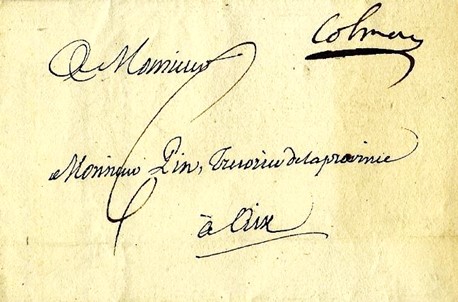 Colmars
A Monsieur
Monsieur Pin, Tresorier de la province
à Aix